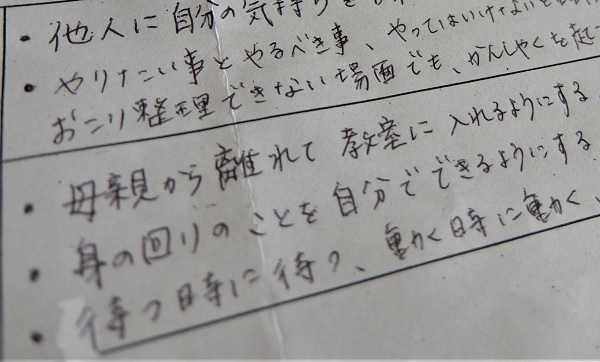 ・他人に自分の気持ちを
・やりたい事とやるべき事、やってはいけないと
おこり整理できない場面でも、かんしゃくを起こ
・母親から離れて教室に入れるようにする
・身の回りのことを自分でできるようにする
・待つ時に待つ、動く時に動く、